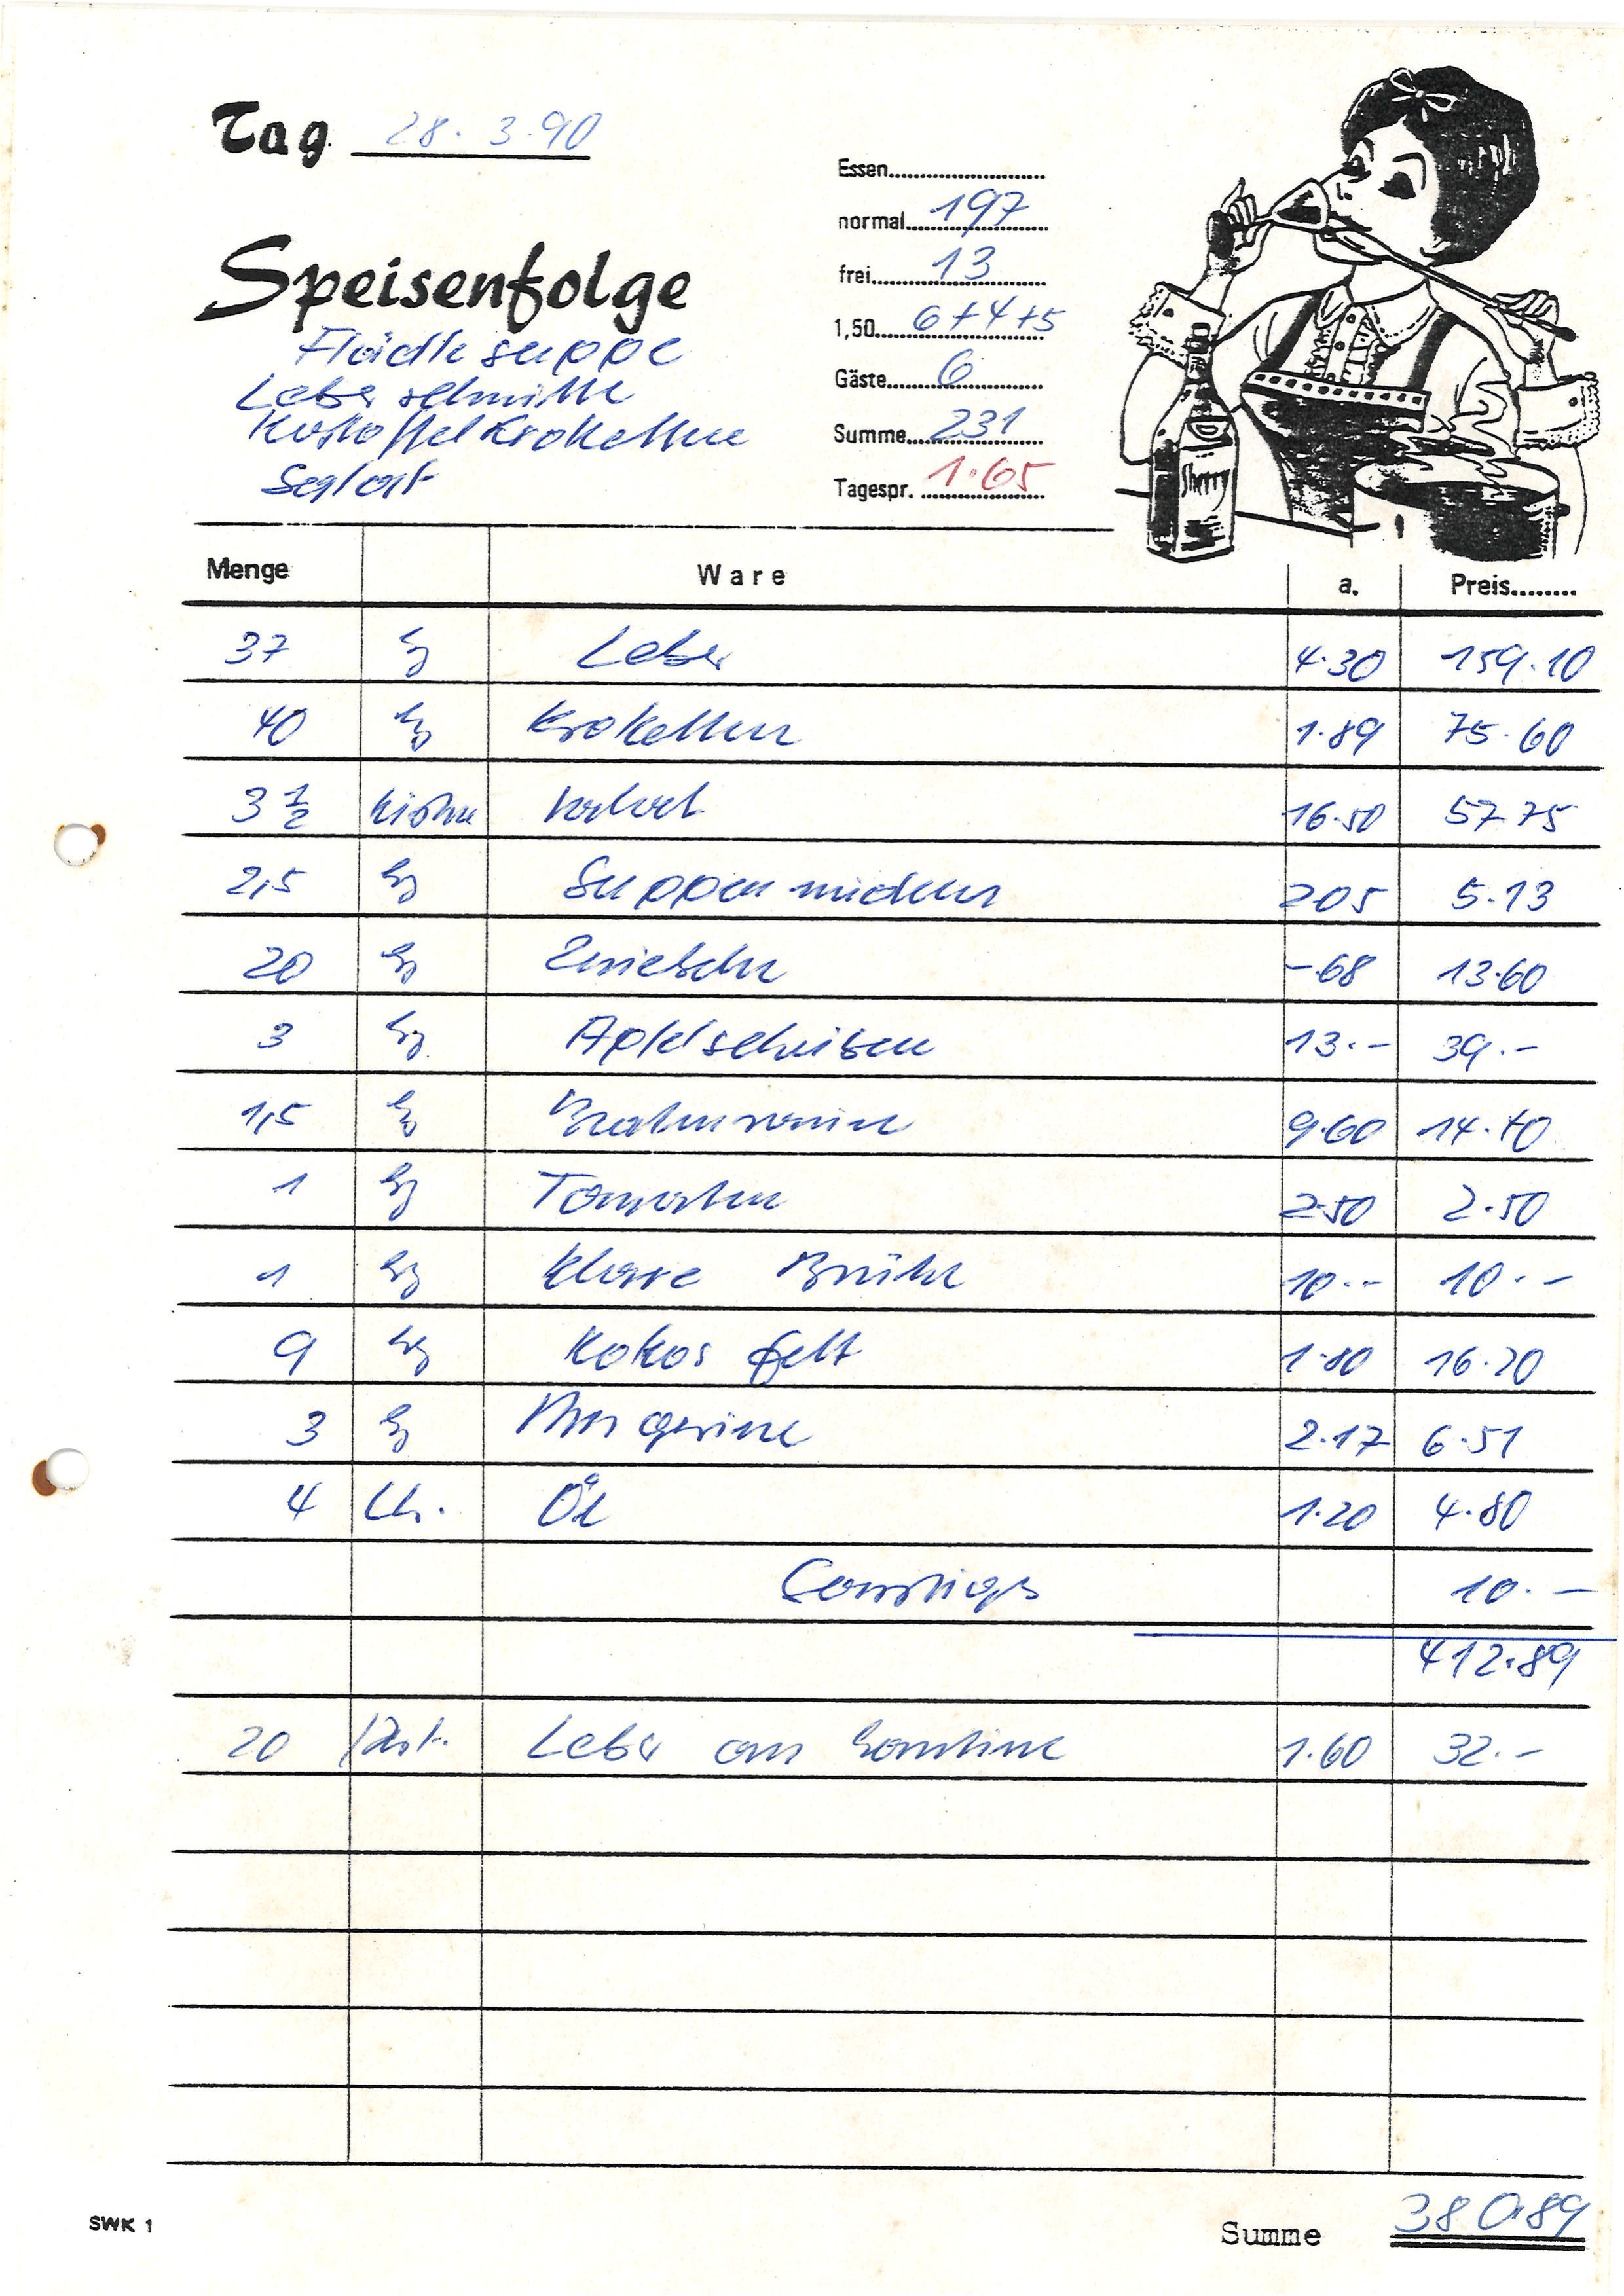 Tag 28.3.90
Speisenfolge
Flädlesuppe
Leberschnitte
Kartoffelkroketten
Salat
Essen
normal 197
frei 13
1,50 6+4+5
Gäste 6
Summe 231
Tagespr. 1.65
Sherry
Menge Ware a. Preis
37 kg Leber 4.30 159.10
40 kg Kroketten 1.89 75.60
3 1/2 Kisten 16.50 57.75
2,5 kg Suppennudeln 205 5.13
20 kg Zwiebeln -.68 13.60
3 kg Apfelscheiben 13.- 39.-
1,5 kg 9.60 14.40
1 kg Tomaten 2.50 2.50
1 kg Klare Brühe 10.- 10.-
9 kg Kokosfett 1.80 16.20
3 kg Margarine 2.17 6.51
4 Ltr. Öl 1.20 4.80
Sonstiges 10.-
412.89
20 Port. Leber an Kantine 1.60 32.-
SWK 1
Summe 380.89